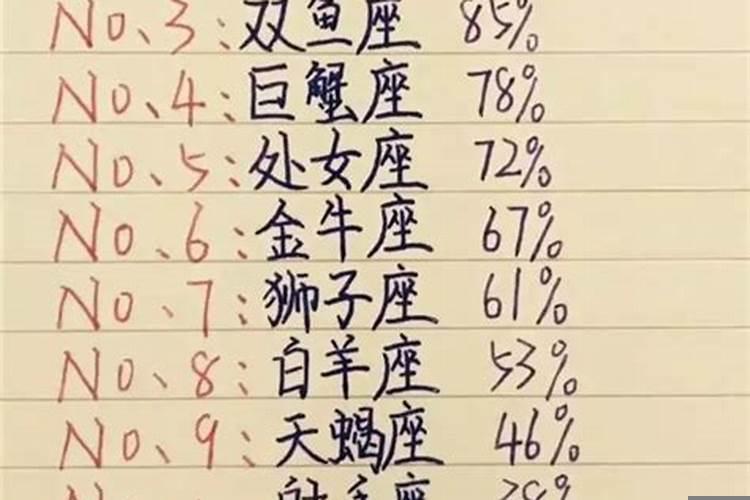 No、3:双鱼座 85%
No、4:巨蟹座 78%
No、5:处女座 72%
No、6:金牛座 67%
No、7:狮子座 61%
No、8:白羊座 53%
No、9:天蝎座 46%